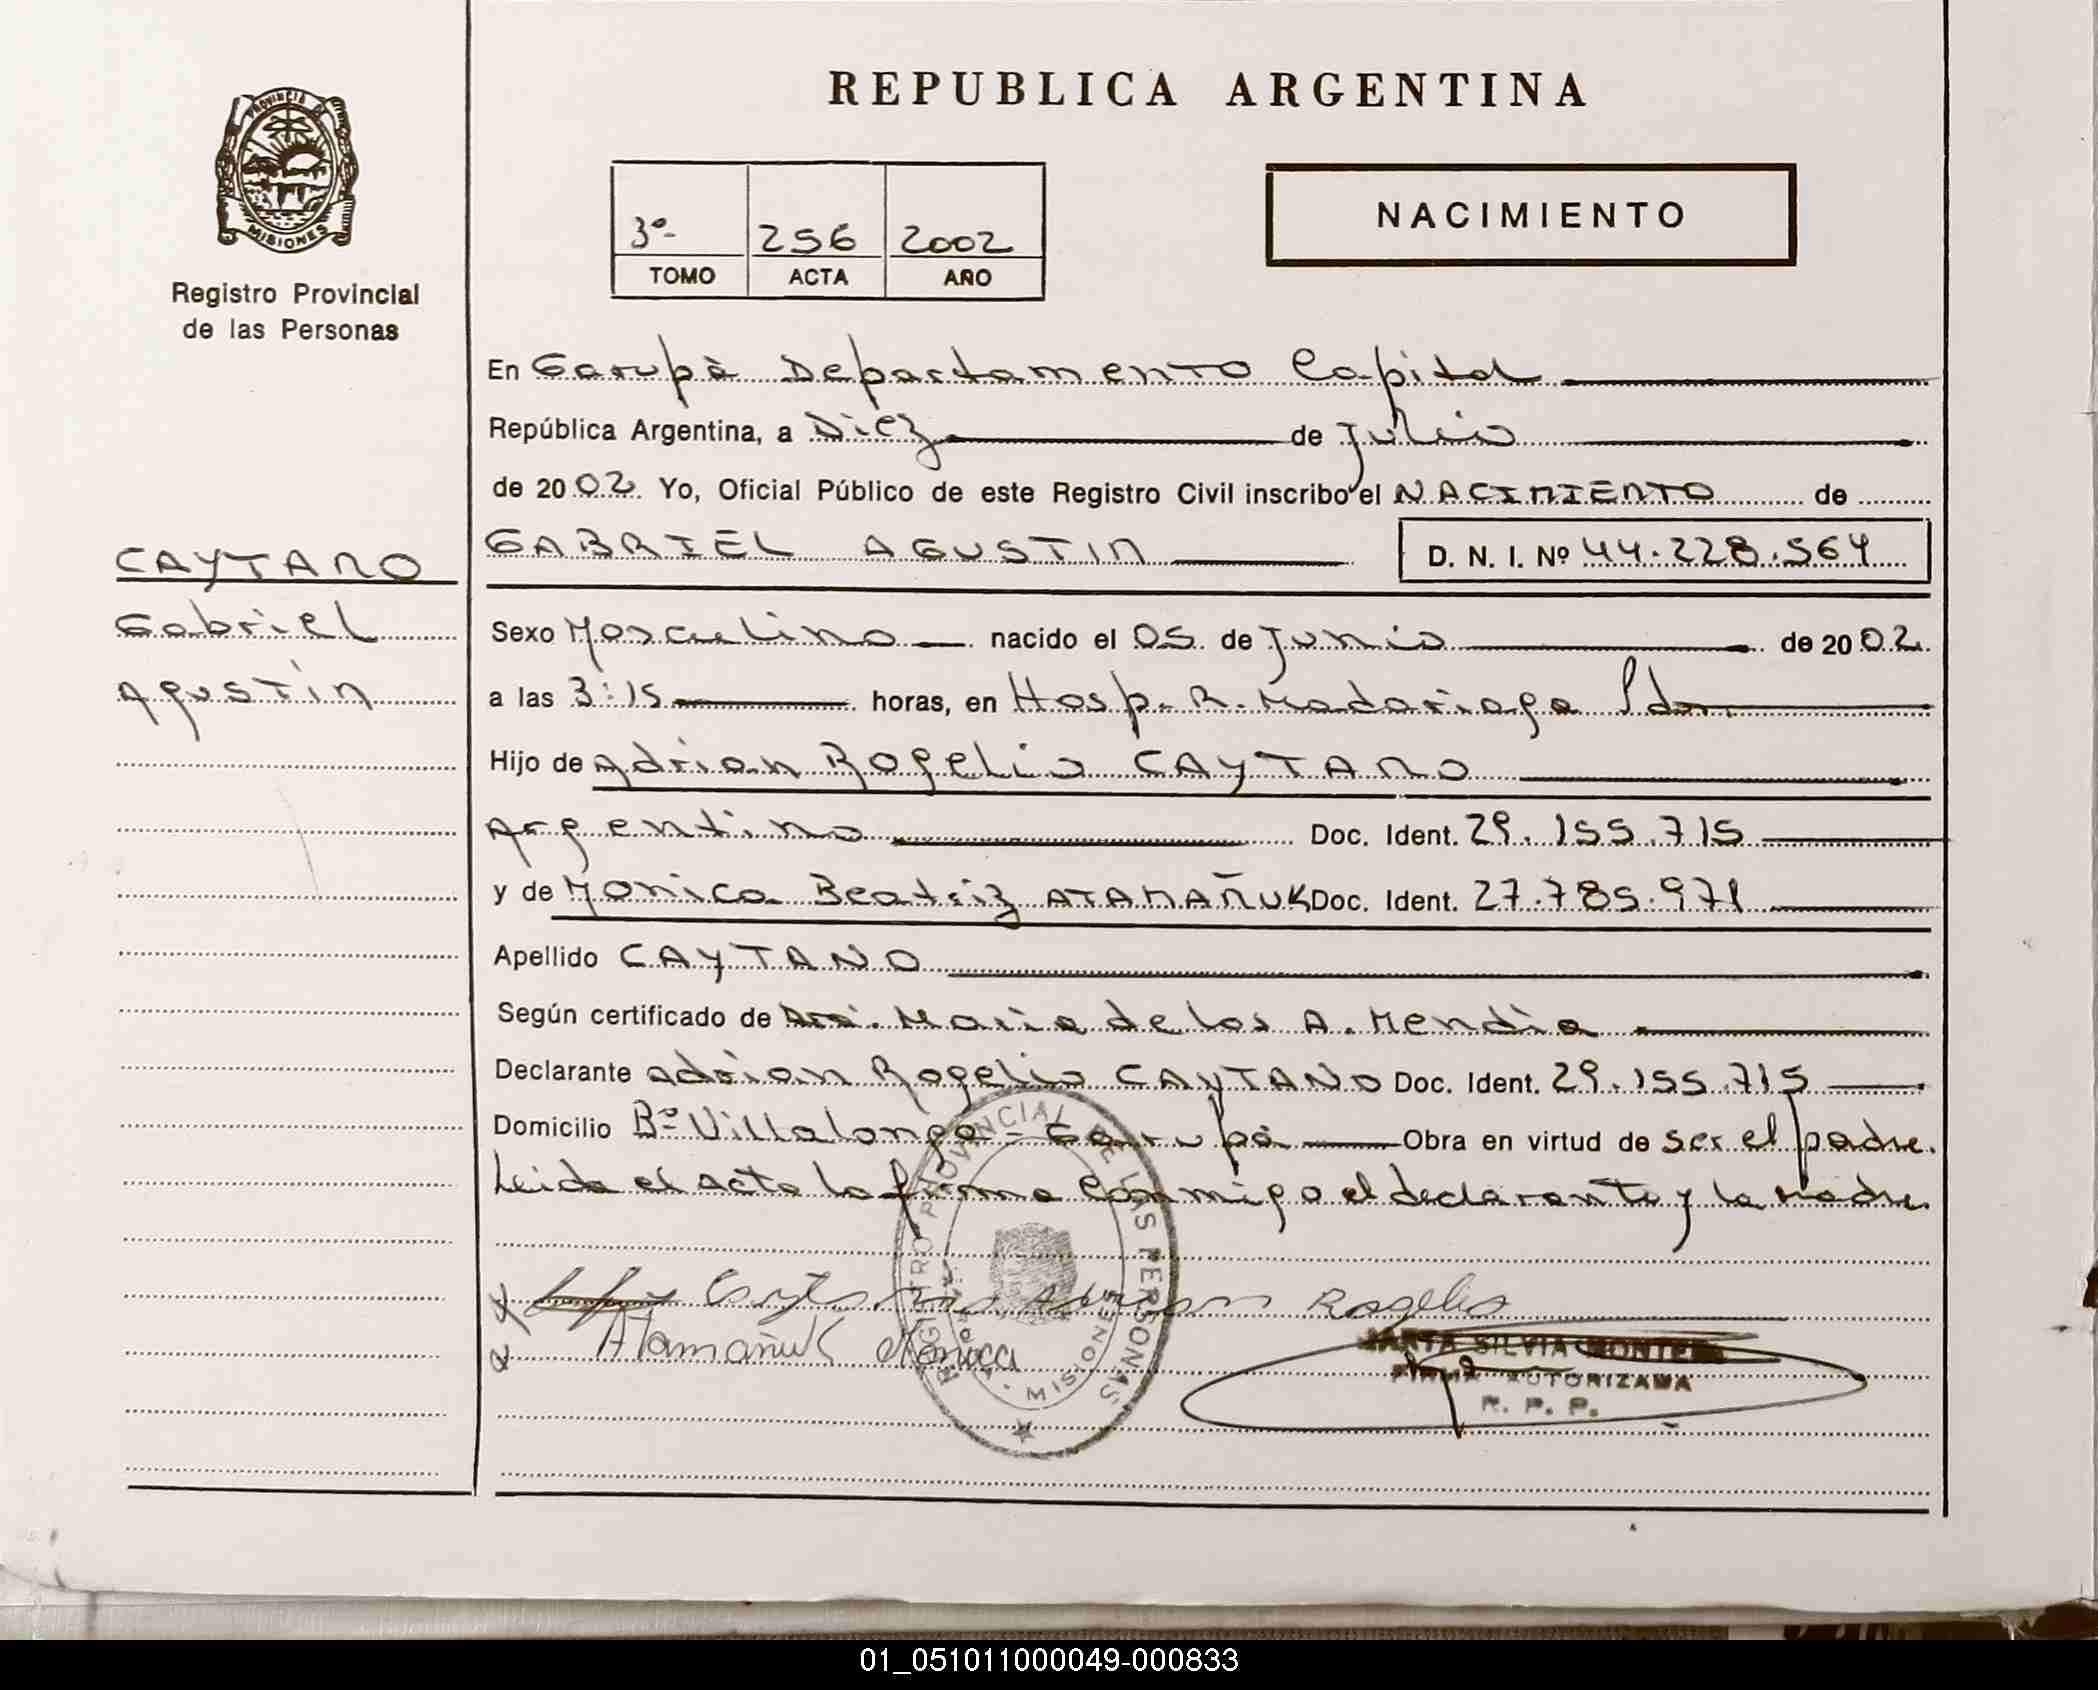 REPUBLICA ARGENTINA
PROVINCIA DE
MISIONES
Registro Provincial
de las Personas
3º-
256
2002
TOMO
ACTA
AÑO
NACIMIENTO
En Garupà Departamento Capital
República Argentina, a Diez de Julio
de 2002. Yo, Oficial Público de este Registro Civil inscribo el NACIMIENTO de
GABRIEL AGUSTIN D. N. I. Nº 44.228.564
CAYTANO
Gabriel
Agustin
Sexo Masculino nacido el 05 de Junio de 2002.
a las 3:15 horas, en Hosp. R. Madariaga Pdas.
Hijo de Adrian Rogelio CAYTANO
Argentino Doc. Ident. 29.155.715
y de Monica Beatriz ATAMAÑUK Doc. Ident. 27.785.971
Apellido CAYTANO
Según certificado de Dra. Maria de los A. Mendia
Declarante Adrian Rogelio CAYTANO Doc. Ident. 29.155.715
Domicilio Bº Villalonga - Garupà Obra en virtud de ser el padre.
Leida el acta la firma conmigo el declarante y la madre
REGISTRO PROVINCIAL DE LAS PERSONAS
MISIONES
Adrian Rogelio
Atamañuk Monica
SILVIA
FIRMA AUTORIZADA
R. P. P.
01_051011000049-000833